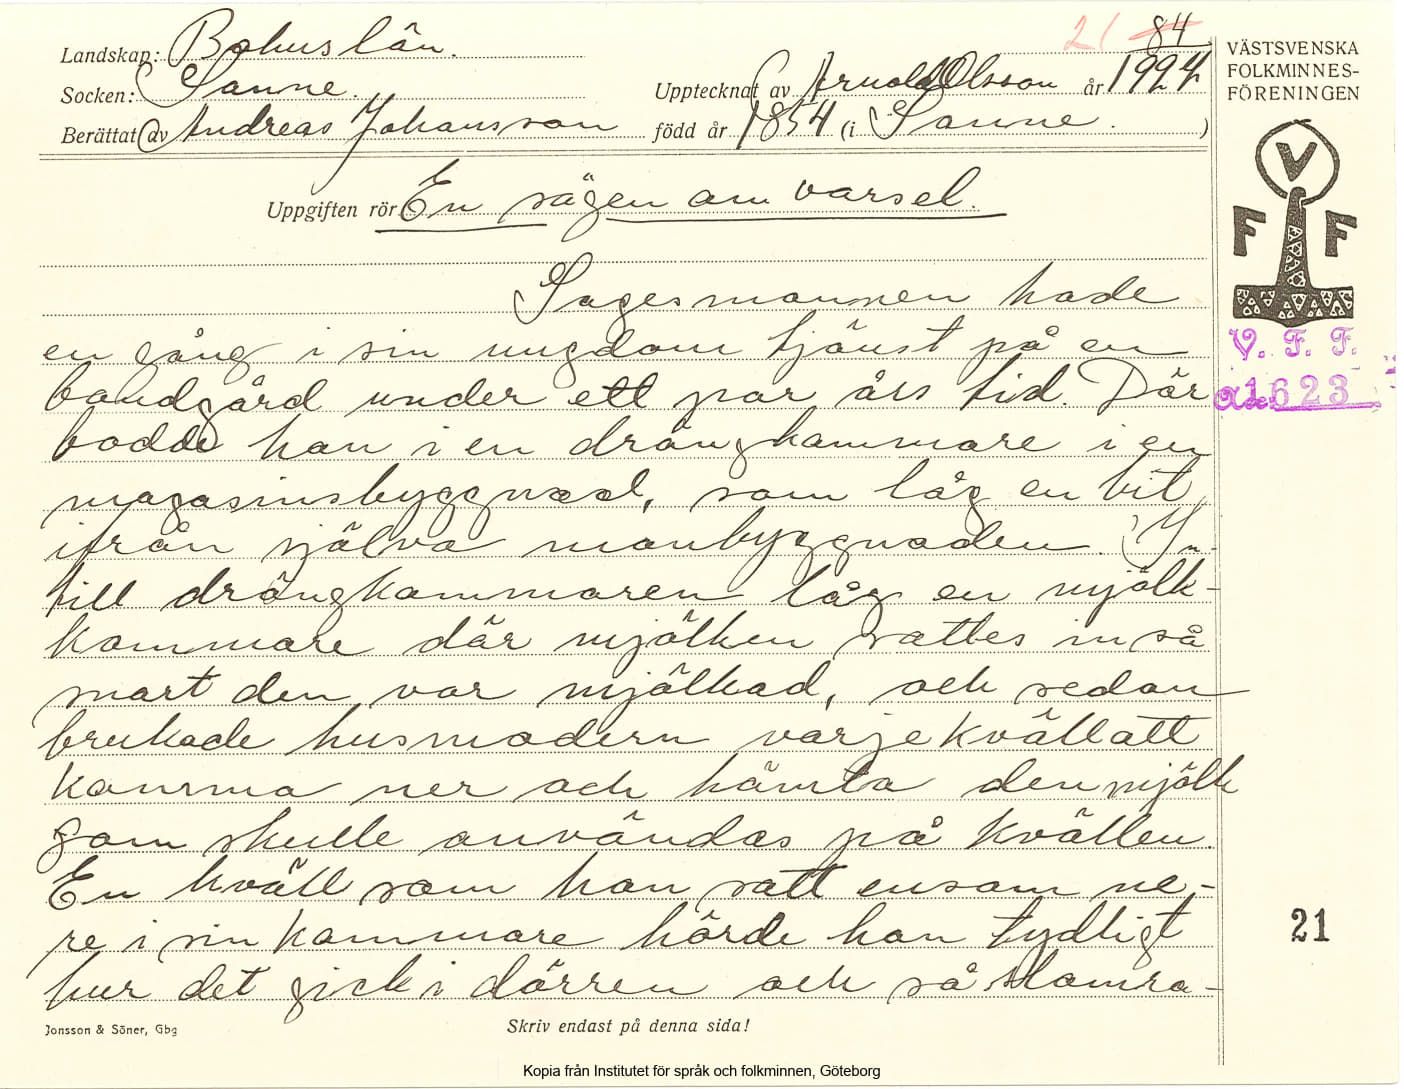 21 84
Landskap: Bohuslän.
Socken: Sanne.
Upptecknat av Arnold Olsson år 1924
Berättat av Andreas Johansson född år 1854 (i Sanne.)
VÄSTSVENSKA
FOLKMINNES-
FÖRENINGEN
V
F F
Uppgiften rör En sägen om varsel.
V. F. F.
1623
Sagesmannen hade
en gång i sin ungdom tjänst på en
bondgård under ett par års tid. Där
bodde han i en drängkammare i en
magasinsbyggnad, som låg en bit
ifrån själva manbyggnaden. In-
till drängkammaren låg en mjölk-
kammare där mjölken sattes in så
snart den var mjölkad, och sedan
brukade husmodern varje kväll att
komma ner och hämta den mjölk
som skulle användas på kvällen.
En kväll som han satt ensam ne-
re i sin kammare hörde han tydligt
hur det gick i dörren och så slamra-
21
Jonsson & Söner, Gbg
Skriv endast på denna sida!
Kopia från Institutet för språk och folkminnen, Göteborg